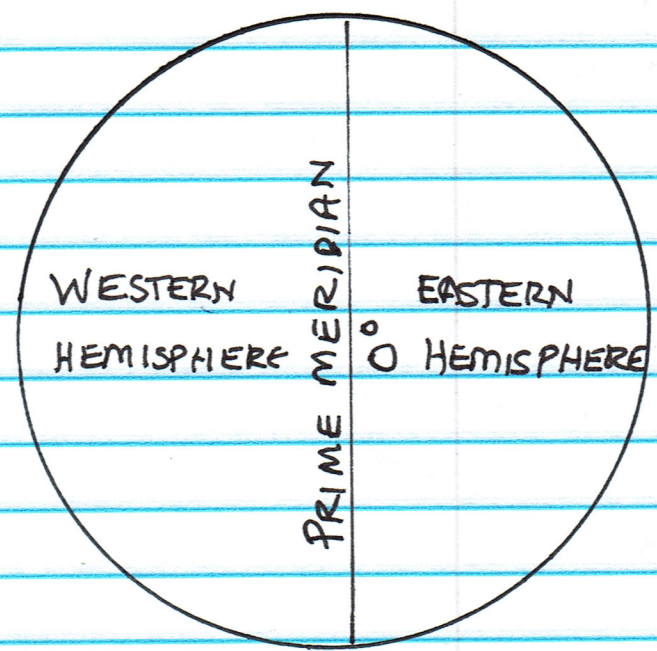 WESTERN
HEMISPHERE
PRIME MERIDIAN
0°
EASTERN
HEMISPHERE